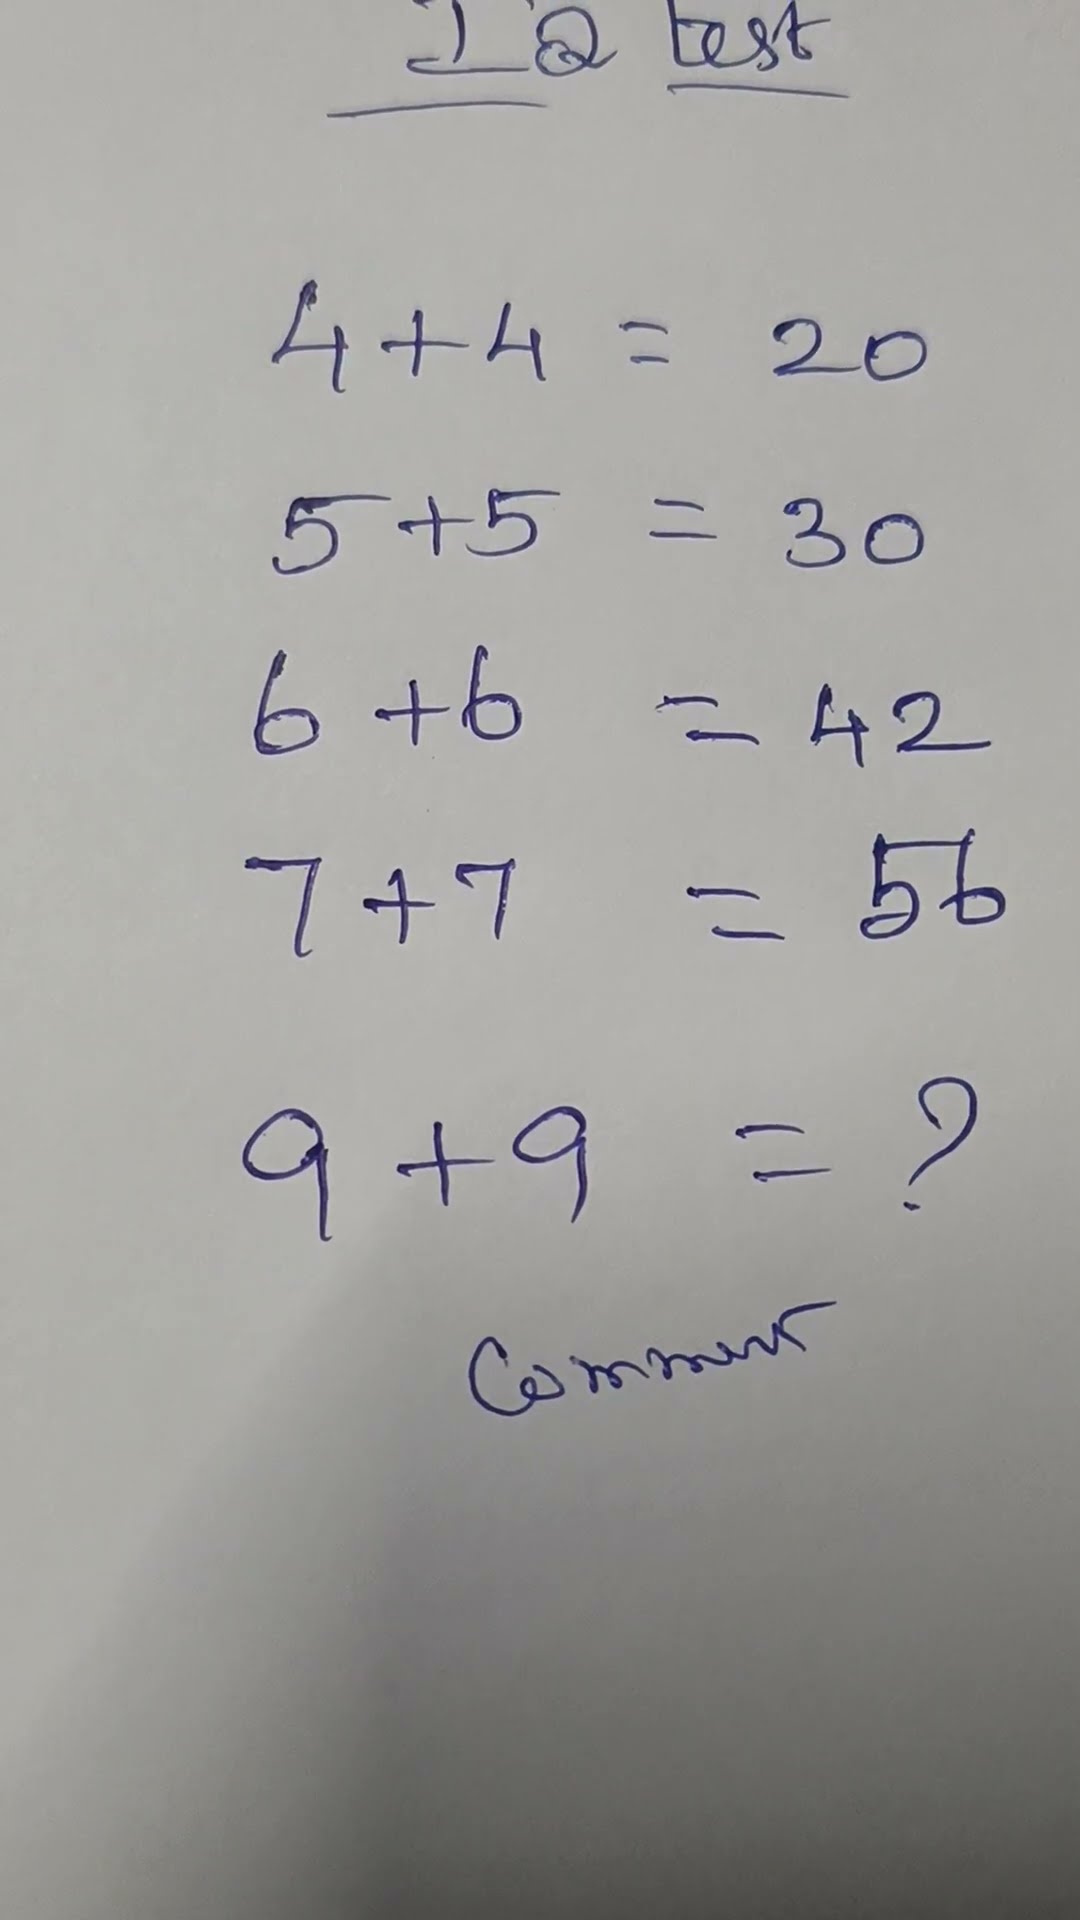 IQ test
4+4 = 20
5+5 = 30
6+6 = 42
7+7 = 56
9+9 = ?
Comment